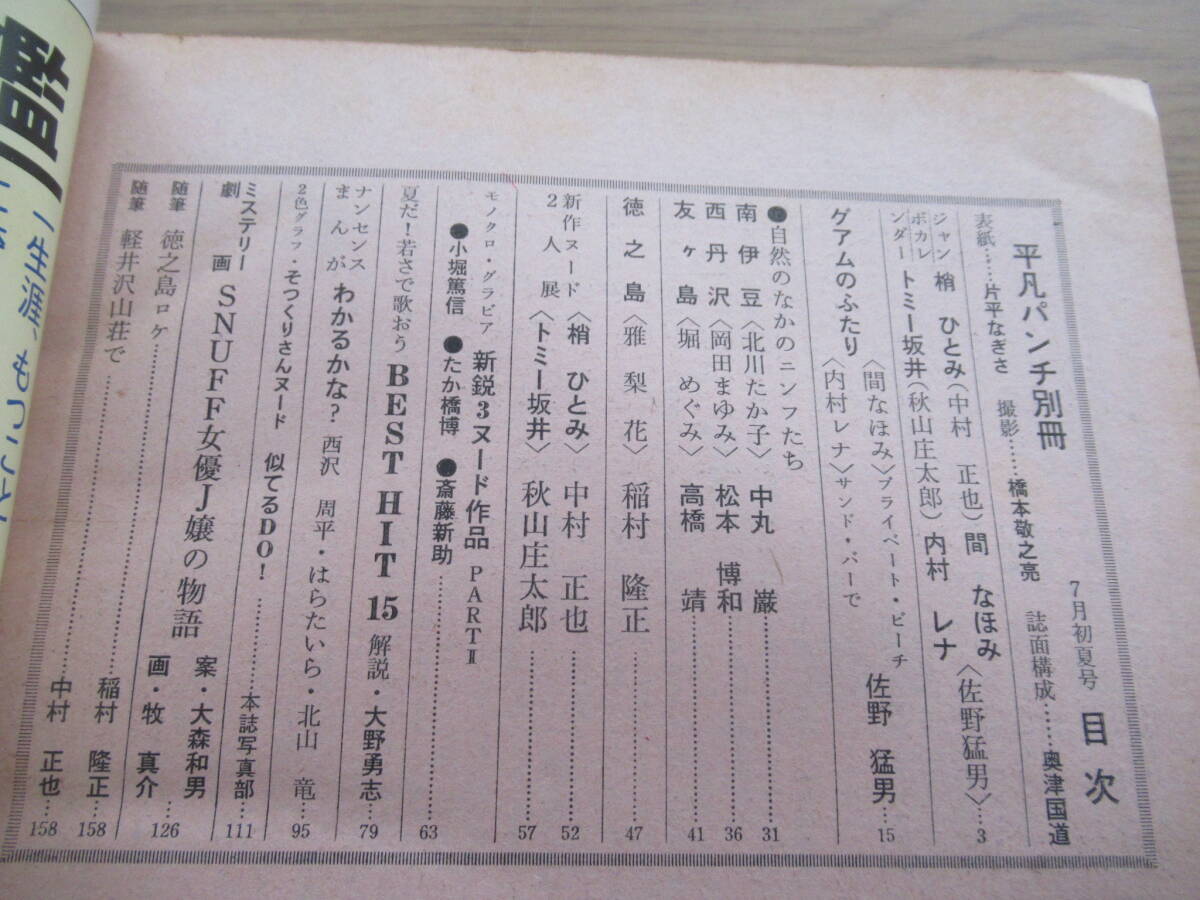 平凡パンチ別冊 7月初夏号 目次
表紙……片平なぎさ 撮影……橋本敬之亮 誌面構成……奥津国道
ジャンボカレンダー
梢 ひとみ(中村 正也) 間 なほみ〈佐野猛男〉…3
トミー坂井(秋山庄太郎) 内村 レナ
グアムのふたり
〈間なほみ〉プライベート・ビーチ
〈内村レナ〉サンド・バーで
佐野 猛男…15
●自然のなかのニンフたち
南伊豆〈北川たか子〉中丸 巌…31
西丹沢〈岡田まゆみ〉松本 博和…36
友ヶ島〈堀 めぐみ〉高橋 靖…41
徳之島〈雅 梨 花〉稲村 隆正…47
新作ヌード2人展
〈梢 ひとみ〉中村 正也…52
〈トミー坂井〉秋山庄太郎…57
モノクロ・グラビア 新鋭3ヌード作品 PARTⅡ
●小堀篤信 ●たか橋博 ●斎藤新助……63
夏だ!若さで歌おう BEST HIT 15 解説・大野勇志…79
ナンセンスまんが わかるかな? 西沢 周平・はらたいら・北山 竜…95
2色グラフ・そっくりさんヌード 似てるDO!……本誌写真部…111
ミステリー劇画 SNUFF女優J嬢の物語 案・大森和男 画・牧 真介…126
随筆 徳之島ロケ……稲村 隆正…158
随筆 軽井沢山荘で……中村 正也…158
一生涯、もつ